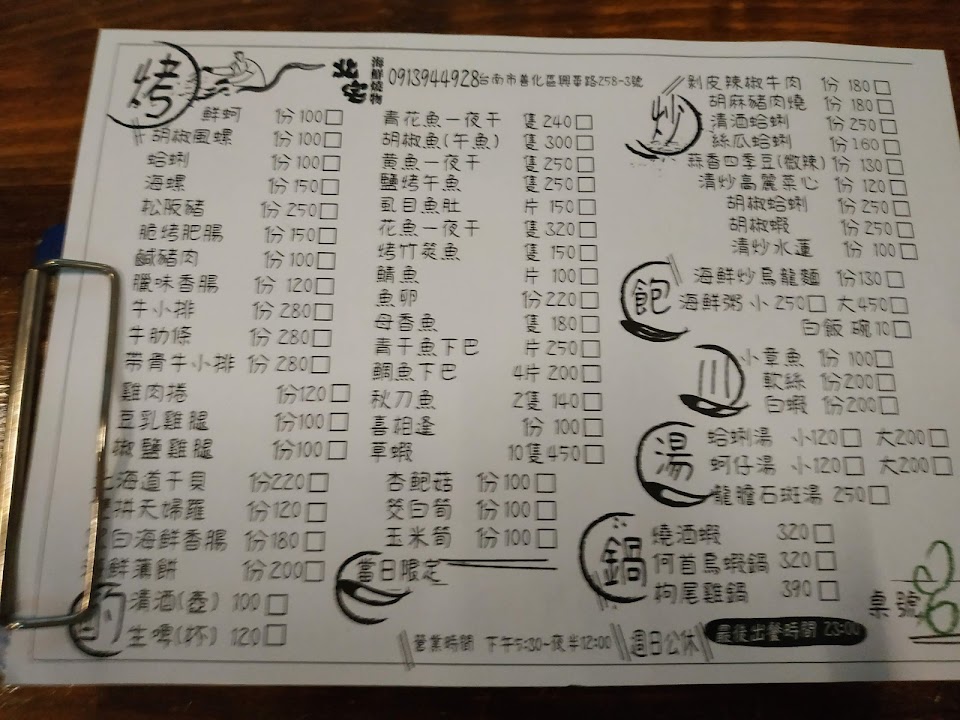 烤
北宅
海鮮燒物
0913944928台南市善化區興華路258-3號
鮮蚵 份100□
胡椒風螺 份100□
蛤蜊 份100□
海螺 份150□
松阪豬 份250□
脆烤肥腸 份150□
鹹豬肉 份100□
臘味香腸 份120□
牛小排 份280□
牛肋條 份280□
帶骨牛小排 份280□
雞肉捲 份120□
豆乳雞腿 份100□
椒鹽雞腿 份100□
海道干貝 份220□
拼天婦羅 份120□
白海鮮香腸 份180□
鮮薄餅 份200□
清酒(壺) 100□
生啤(杯) 120□
青花魚一夜干 隻240□
胡椒魚(午魚) 隻300□
黃魚一夜干 隻250□
鹽烤午魚 隻250□
虱目魚肚 片150□
花魚一夜干 隻320□
烤竹筴魚 隻150□
鯖魚 片100□
魚卵 份220□
母香魚 隻180□
青干魚下巴 片250□
鯛魚下巴 4片200□
秋刀魚 2隻140□
喜相逢 份100□
草蝦 10隻450□
杏鮑菇 份100□
茭白筍 份100□
玉米筍 份100□
當日限定
炒
剝皮辣椒牛肉 份180□
胡麻豬肉燒 份180□
清酒蛤蜊 份250□
絲瓜蛤蜊 份160□
蒜香四季豆(微辣) 份130□
清炒高麗菜心 份120□
胡椒蛤蜊 份250□
胡椒蝦 份250□
清炒水蓮 份100□
飽
海鮮炒烏龍麵 份130□
海鮮粥 小250□ 大450□
白飯 碗10□
川
小章魚 份100□
軟絲 份200□
白蝦 份200□
湯
蛤蜊湯 小120□ 大200□
蚵仔湯 小120□ 大200□
龍膽石斑湯 250□
鍋
燒酒蝦 320□
何首烏蝦鍋 320□
枸尾雞鍋 390□
桌號
營業時間 下午5:30-夜半12:00
週日公休
最後出餐時間 23:00